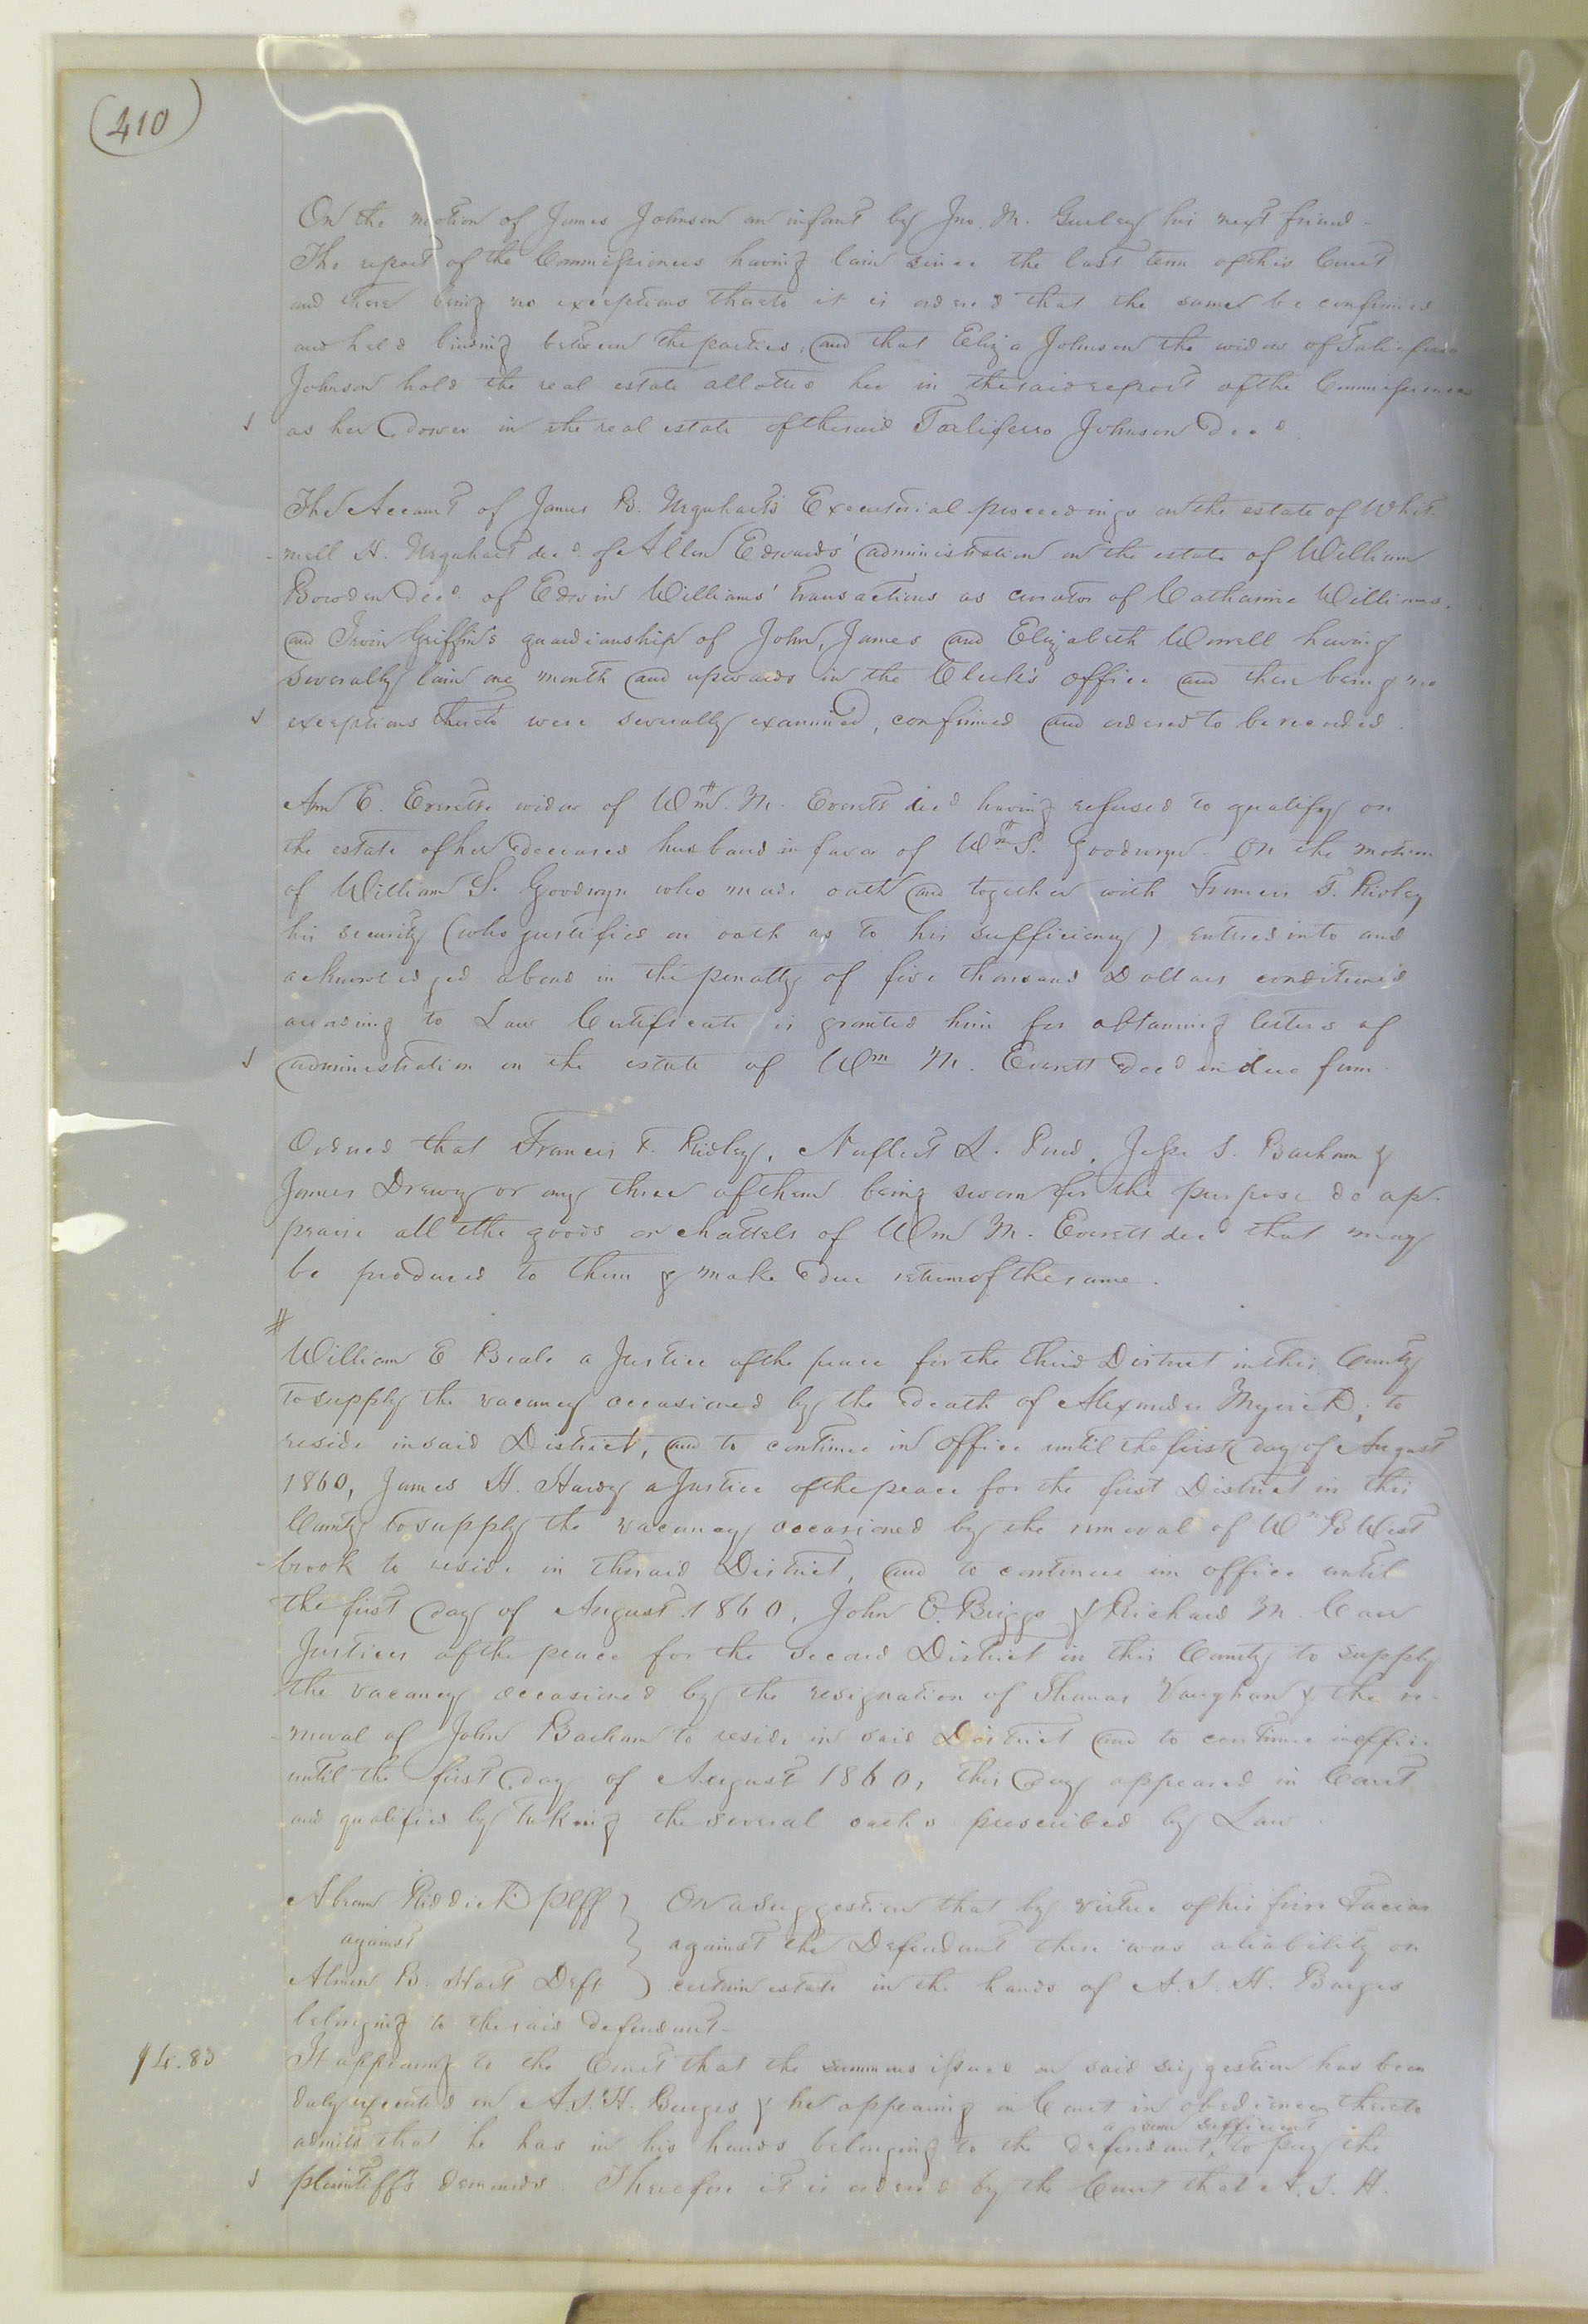 (410)
On the motion of James Johnson an infant by Jno. M. Gurley his next friend -
The report of the Commissioners having lain since the last term of this Court
and there being no exceptions thereto it is ordered that the same be confirmed
and held binding between the parties; and that Eliza Johnson the widow of Taliaferro
Johnson hold the real estate allotted her in the said report of the Commissioners
as her Dower in the real estate of the said Taliferro Johnson Decd
The Account of James B. Urquhart's Executorial proceedings on the estate of Whit-
-mell H. Urquhart decd. of Allen Edwards' administration on the estate of William
Bowden Decd. of Edwin Williams' transactions as curator of Catharine Williams,
and Irvin Griffin's guardianship of John, James and Elizabeth Worrell having
severally lain one month and upwards in the Clerk's office and there being no
exceptions thereto were severally examined, confirmed and ordered to be recorded.
Ann E. Everett widow of Wm. M. Everett decd having refused to qualify on
the estate of her deceased husband in favor of Wm S. Goodwyn - On the motion
of William S. Goodwyn who made oath and together with Francis T. Ridley
his security (who justified on oath as to his sufficiency) entered into and
acknowledged a bond in the penalty of five thousand Dollars conditioned
according to Law Certificate is granted him for obtaining letters of
administration on the estate of Wm M. Everett Decd in due form.
Ordered that Francis T. Ridley, Nuflect L. Pond, Jesse S. Barham &
James Drewry or any three of them being sworn for the purpose do ap-
praise all the goods or chattels of Wm M. Everett decd that may
be produced to them & make due return of the same.
#
William E Beale a Justice of the peace for the third District in this County
to supply the vacancy occasioned by the death of Alexander Myrick; to
reside in said District, and to continue in office until the first day of August
1860, James H. Hardy a Justice of the peace for the first District in this
County to supply the vacancy occasioned by the removal of Wm B West
-brook to reside in the said District, and to continue in office until
the first day of August 1860, John E. Briggs & Richard M. Carr
Justices of the peace for the second District in this County to supply
the vacancy occasioned by the resignation of Thomas Vaughan & the re-
-moval of John Barham to reside in said District and to continue in office
until the first day of August 1860, this day appeared in Court
and qualified by taking the several oaths prescribed by Law.
Abram Riddick Plff } On a suggestion that by virtue of his fieri Facias
against } against the Defendant there was a liability on
Almon B. Hart Deft } certain estate in the hands of A. S. H. Burges
belonging to the said defendant -
$4.83 It appearing to the Court that the summons issued on said suggestion has been
duly executed on A. S. H. Burges & he appearing in Court in obedience thereto
a sum sufficient
admits that he has in his hands belonging to the defendant, to pay the
plaintiff's demands. Therefore it is ordered by the Court that A. S. H.